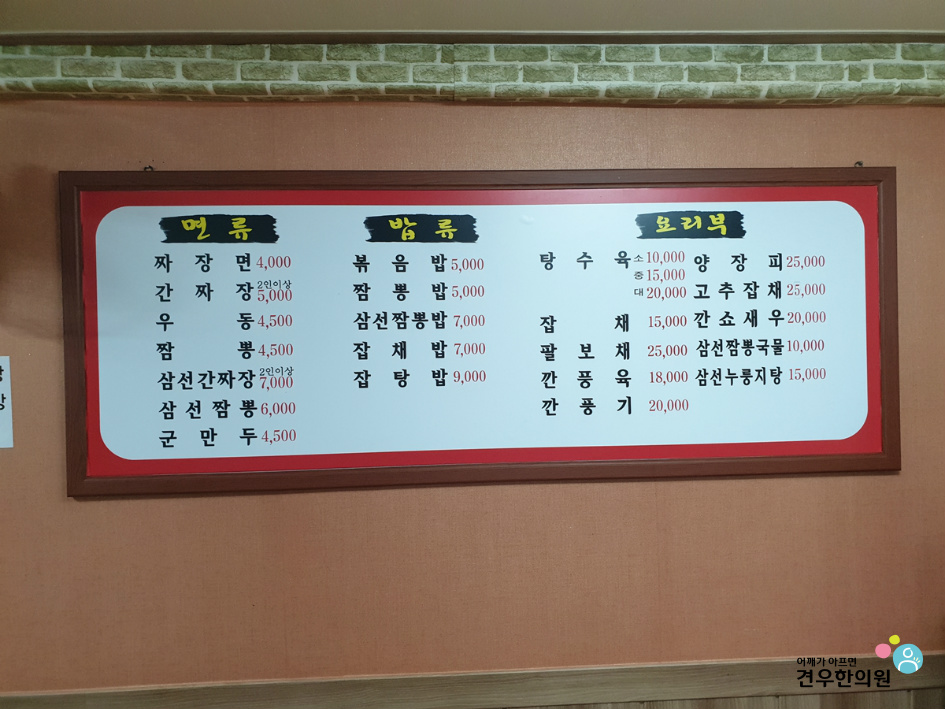 면류
짜장면 4,000
간짜장 2인이상 5,000
우동 4,500
짬뽕 4,500
삼선간짜장 2인이상 7,000
삼선짬뽕 6,000
군만두 4,500
밥류
볶음밥 5,000
짬뽕밥 5,000
삼선짬뽕밥 7,000
잡채밥 7,000
잡탕밥 9,000
요리부
탕수육 소 10,000
중 15,000
대 20,000
잡채 15,000
팔보채 25,000
깐풍육 18,000
깐풍기 20,000
양장피 25,000
고추잡채 25,000
깐쇼새우 20,000
삼선짬뽕국물 10,000
삼선누룽지탕 15,000
어깨가 아프면
견우한의원